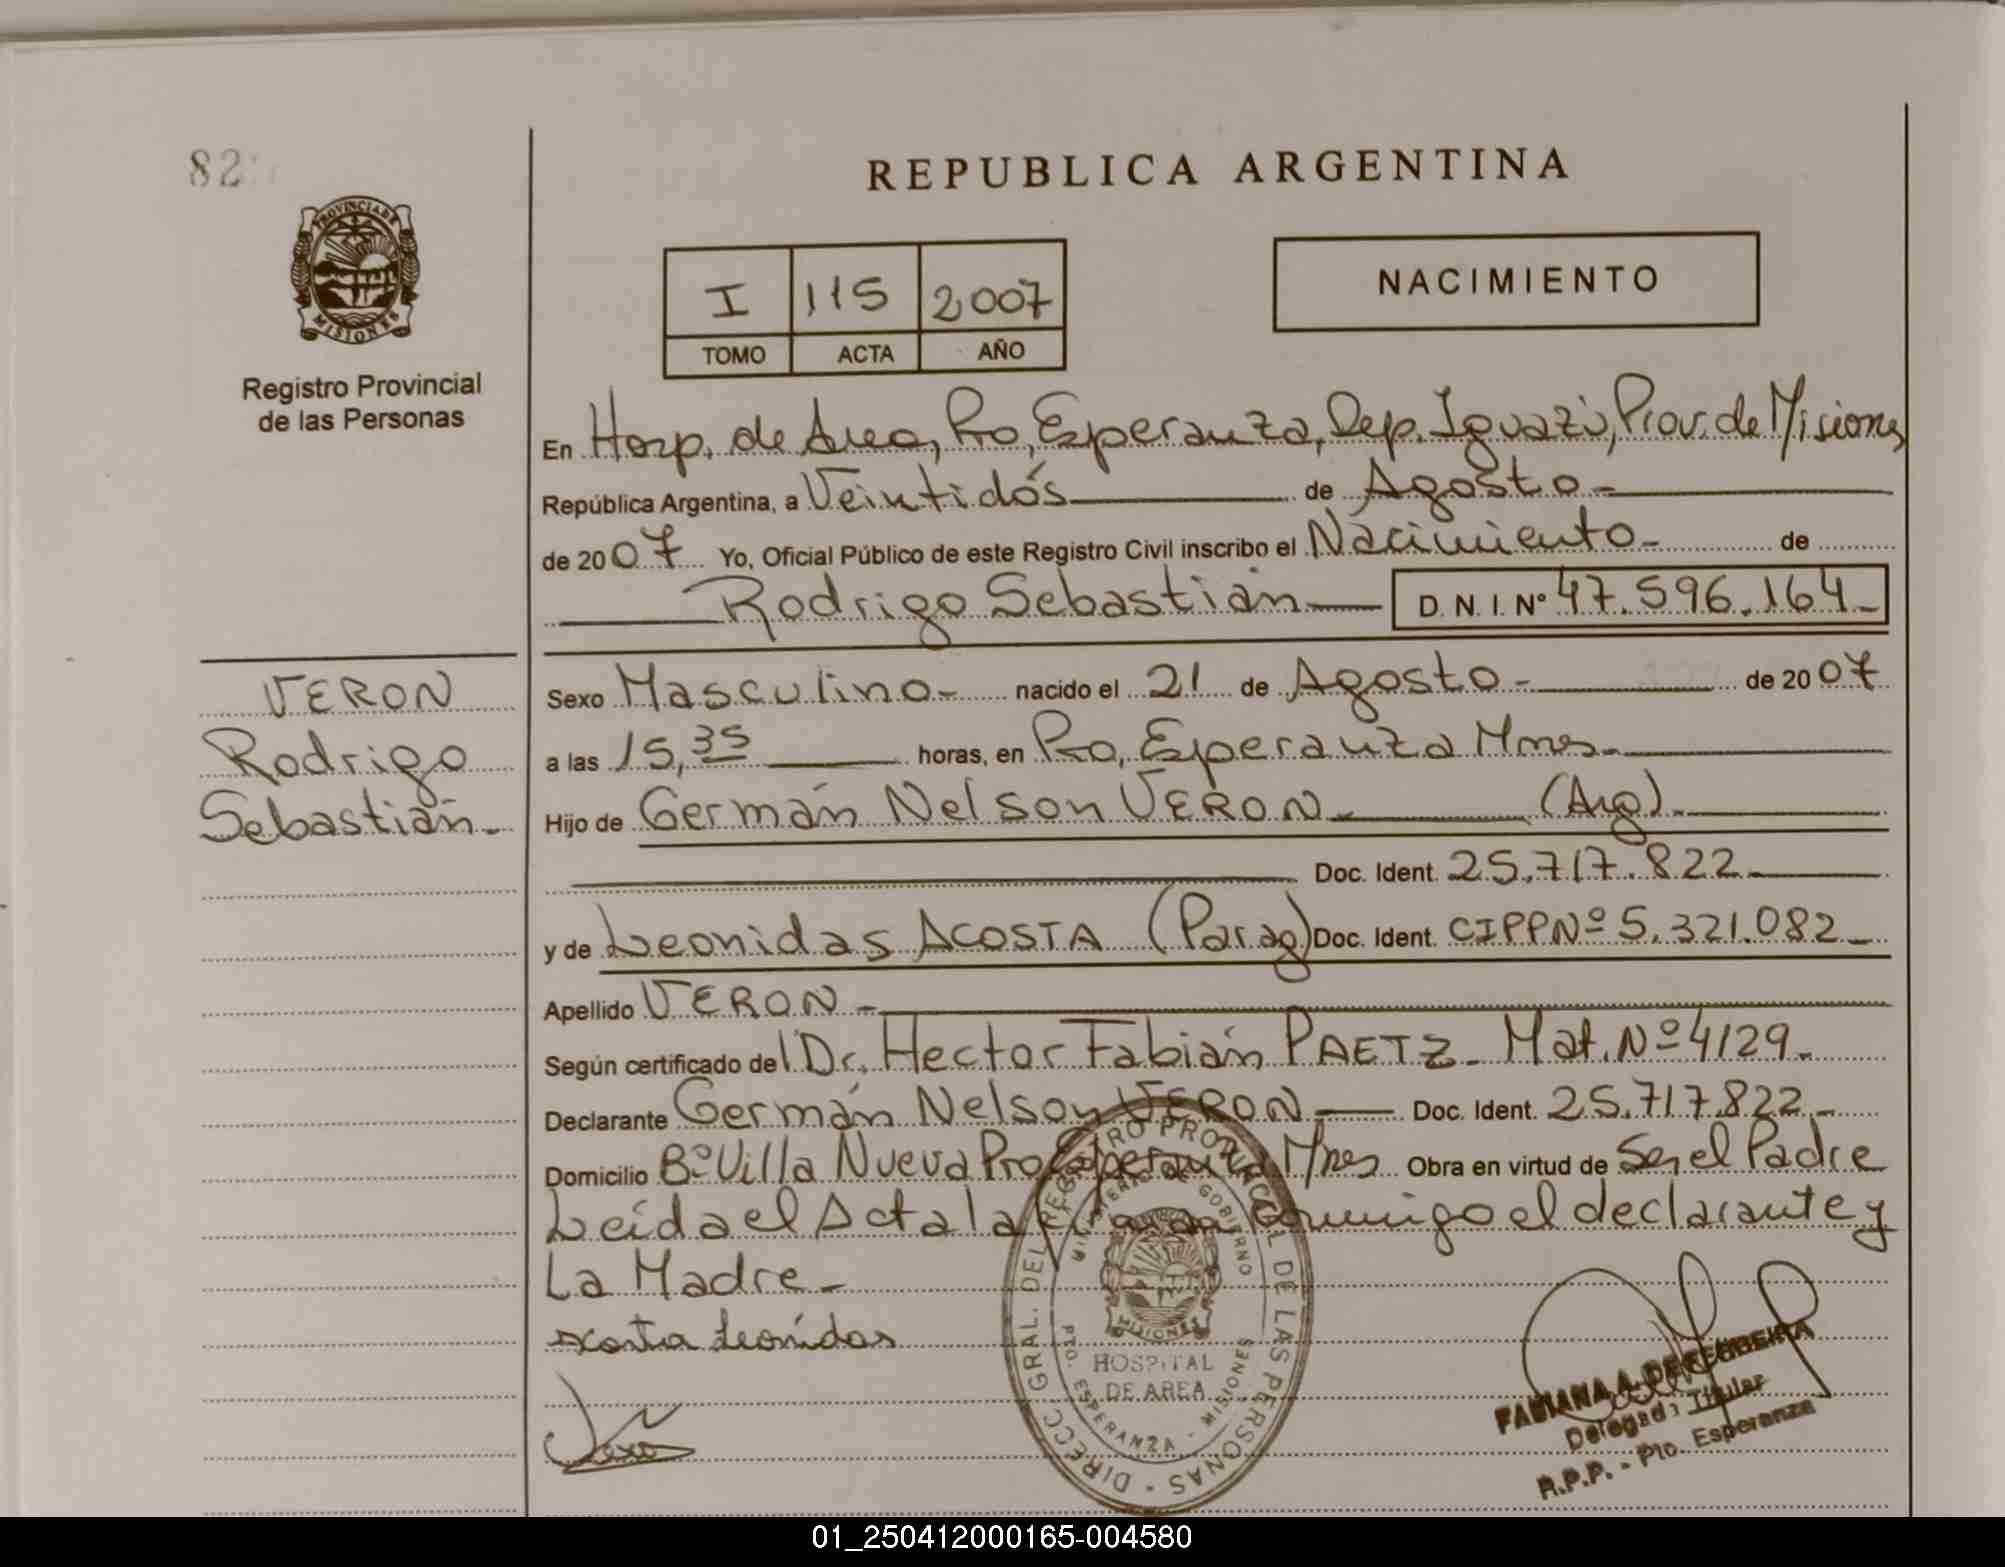 82
PROVINCIA DE
MISIONES
Registro Provincial
de las Personas
VERON
Rodrigo
Sebastián.-
REPUBLICA ARGENTINA
I 115 2007
TOMO ACTA AÑO
NACIMIENTO
En Hosp. de Area, Pto, Esperanza, Dep. Iguazú, Prov. de Misiones
República Argentina, a Veintidós de Agosto.-
de 2007 Yo, Oficial Público de este Registro Civil inscribo el Nacimiento.- de
Rodrigo Sebastián D. N. I. Nº 47.596.164.-
Sexo Masculino.- nacido el 21 de Agosto.- de 2007
a las 15,35 horas, en Pto, Esperanza Mnes.-
Hijo de Germán Nelson VERON.- (Arg).-
Doc. Ident. 25.717.822.-
y de Leonidas ACOSTA (Parag) Doc. Ident. CIPPNº 5.321.082.-
Apellido VERON.-
Según certificado del Dr. Hector Fabián PAETZ.- Mat. Nº 4129.-
Declarante Germán Nelson VERON Doc. Ident. 25.717.822.-
Domicilio Bº Villa Nueva Pto Esperanza Mnes Obra en virtud de Ser el Padre
Leída el Acta la firman conmigo el declarante y
La Madre.-
Acosta Leonidas
DIRECC. GRAL. DEL REGISTRO PROVINCIAL DE LAS PERSONAS
MINISTERIO DE GOBIERNO
MISIONES
HOSPITAL
DE AREA
PTO. ESPERANZA - MISIONES
FABIANA A. DE
Delegada Titular
R.P.P. - Pto. Esperanza
01_250412000165-004580